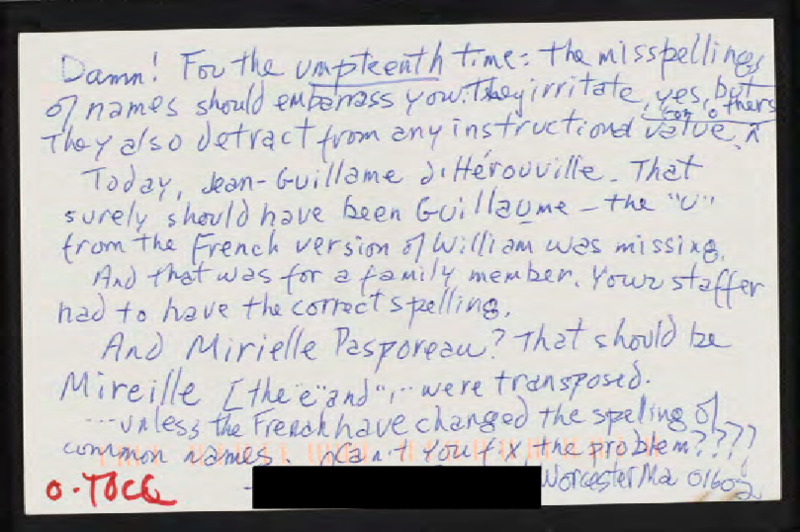 Damn! For the umpteenth time: the misspellings
of names should embarrass you. They irritate, yes, but
for others
They also detract from any instructional value. ^
Today, Jean-Guillame d'Hérouville. That
surely should have been Guillaume – the "U"
from the French version of William was missing.
And that was for a family member. Your staffer
had to have the correct spelling.
And Mirielle Pasporeau? That should be
Mireille [the "e" and "i" were transposed.
...unless the French have changed the speling of
common names. Can't you fix the problem????
O.TOCG Worcester Ma 01602